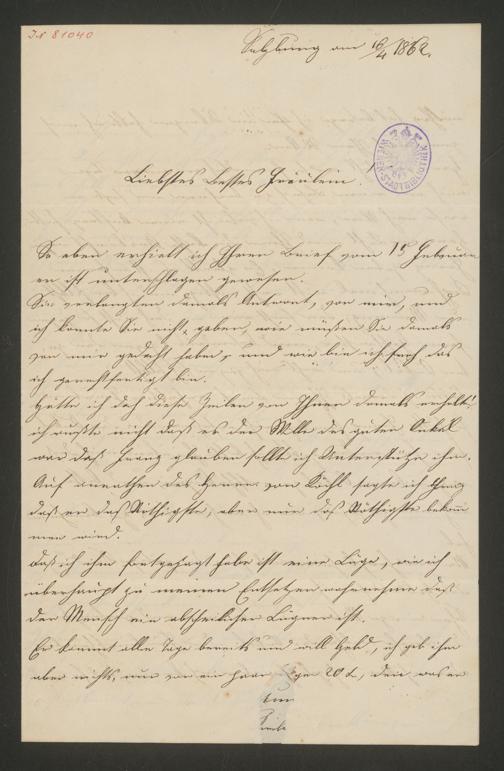 IN 81040
Salzburg am 16/4 1862.
WIENER STADTBIBLIOTHEK
Liebstes bestes Fräulein.
So eben erhielt ich Ihren Brief vom 15 Februar
er ist unterschlagen gewesen.
Sie verlangten damals Antwort, von mir, und
ich konnte Sie nicht geben, wie müßen Sie damals
von mir gedacht haben, und wie bin ich froh, das
ich gerechtfertigt bin.
Hätte ich doch diese Zeilen von Ihnen damals erhalt!
ich wußte nicht daß es der Wille des guten Onkel
war daß Franz glauben sollte ich Unterstütze ihn.
Auf anrathen des Herrn von Köchl sagte ich Franz
daß er das Nöthigste, aber nur das Nöthigste bekom
men wird.
Daß ich ihm fortgejagt habe ist eine Lüge, wie ich
überhaupt zu meinem Entsetzen wahrnehme daß
der Mensch ein abscheulicher Lügner ist.
Er kommt alle Tage bereits und will Geld, ich geb ihm
aber nichts, nur vor ein paar 20 x, denn was er